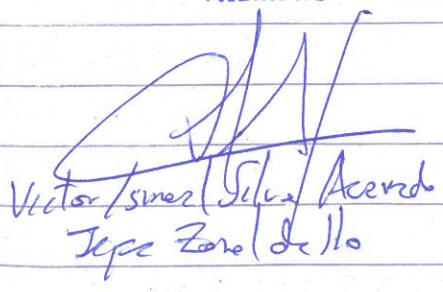 Victor Ismael Silva Acevedo
Jepe Zonal